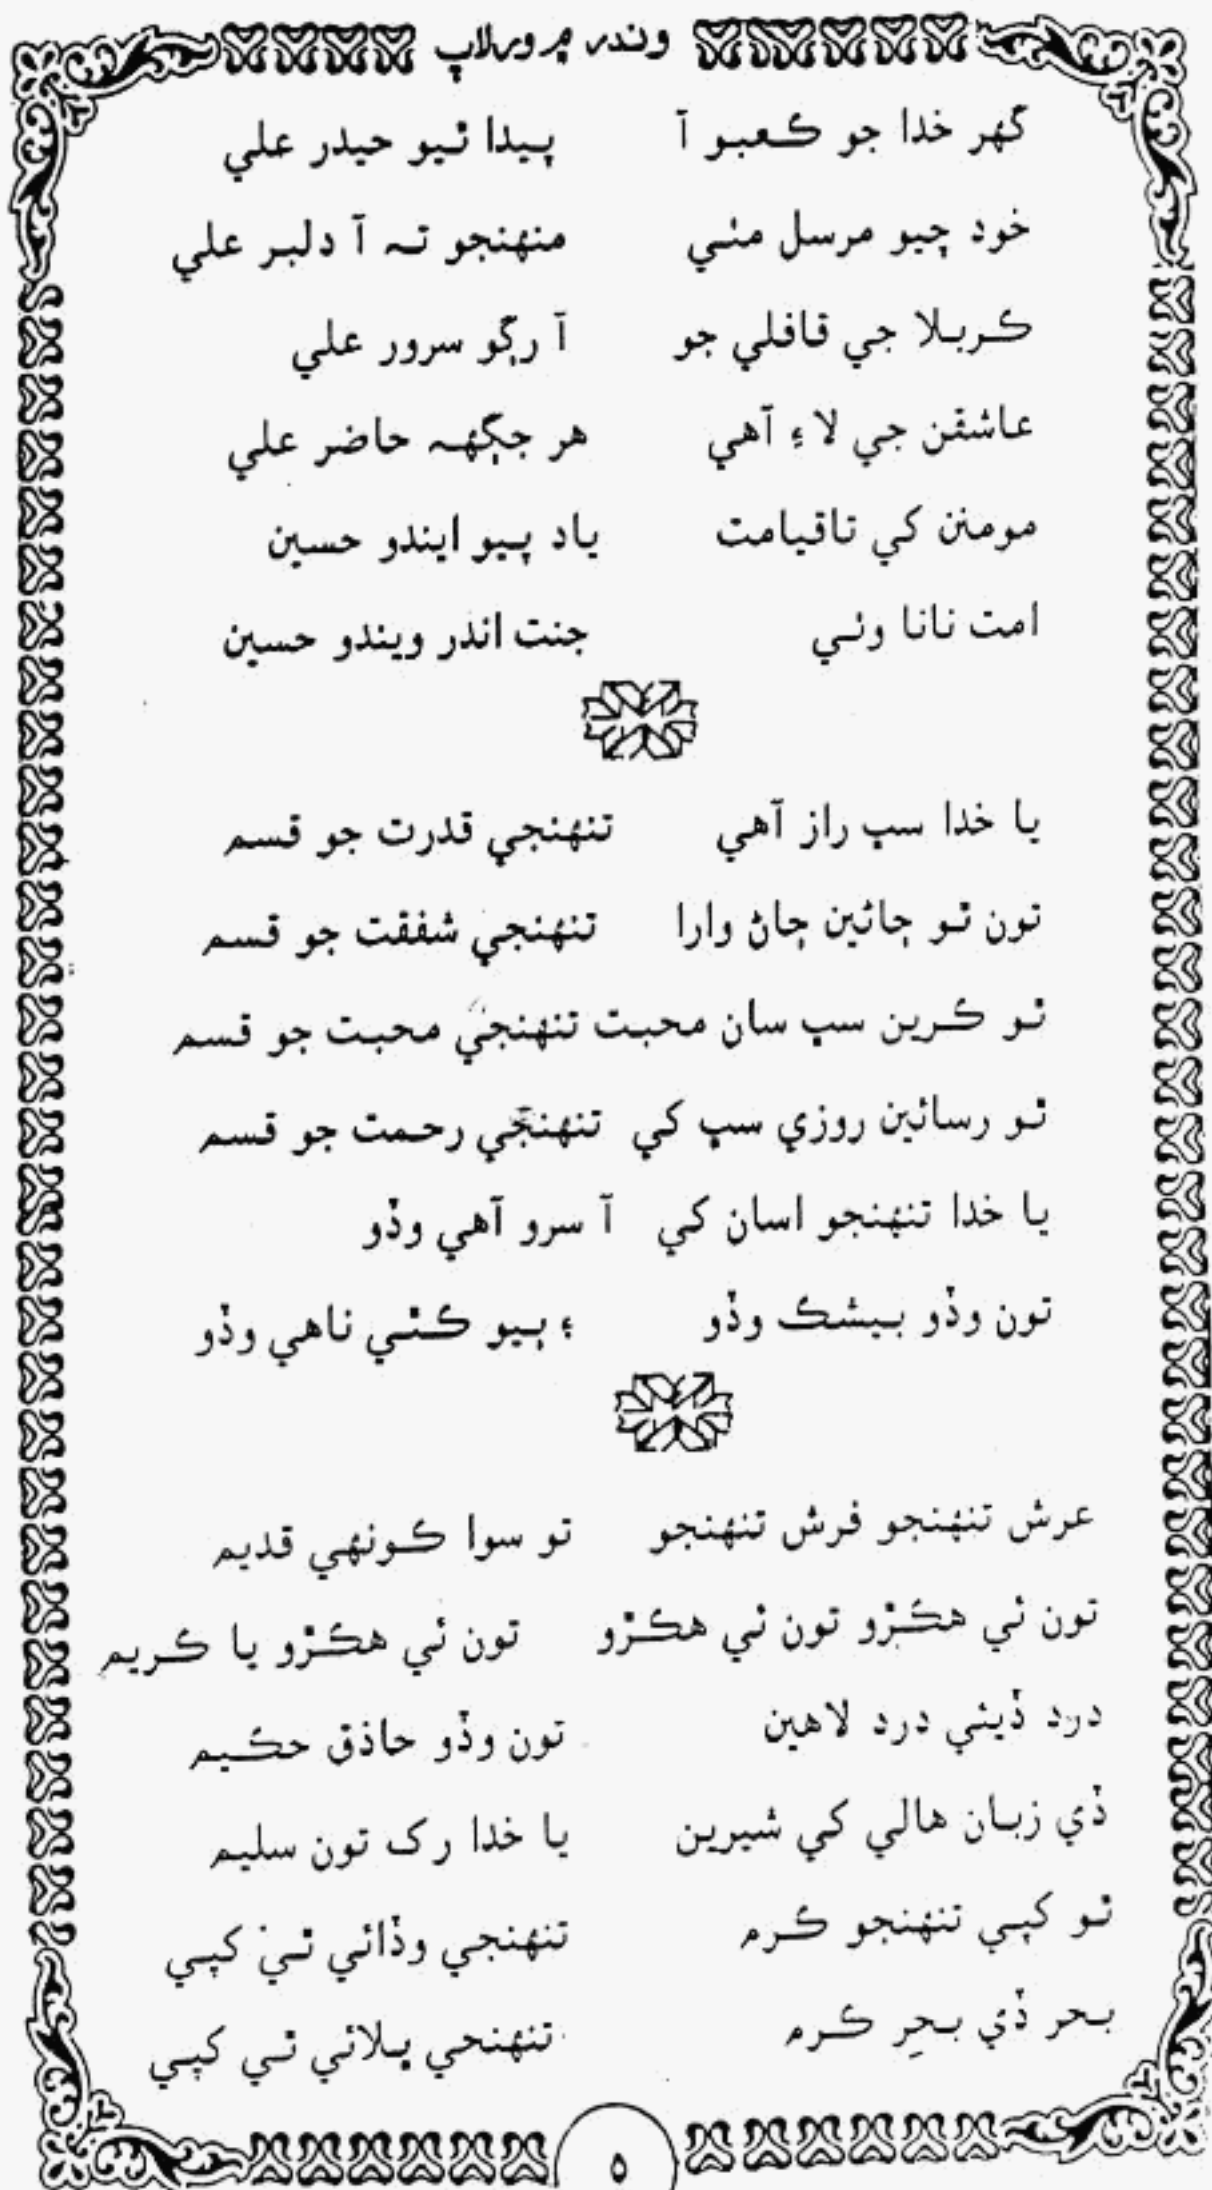 وندر ۾ ورلاپ
گهر خدا جو ڪعبو آ پيدا ٿيو حيدر علي
خود چيو مرسل مٺي منهنجو تہ آ دلبر علي
ڪربلا جي قافلي جو آ رڳو سرور علي
عاشقن جي لاءِ آهي هر جڳهہ حاضر علي
مومنن کي تاقيامت ياد پيو ايندو حسين
امت نانا وٺي جنت اندر ويندو حسين
يا خدا سڀ راز آهي تنهنجي قدرت جو قسم
تون ٿو ڄاڻين ڄاڻ وارا تنهنجي شفقت جو قسم
ٿو ڪرين سڀ سان محبت تنهنجي محبت جو قسم
ٿو رسائين روزي سڀ کي تنهنجي رحمت جو قسم
يا خدا تنهنجو اسان کي آ سرو آهي وڏو
تون وڏو بيشڪ وڏو ۽ ٻيو ڪٿي ناهي وڏو
عرش تنهنجو فرش تنهنجو تو سوا ڪونهي قديم
تون ئي هڪڙو تون ئي هڪڙو تون ئي هڪڙو يا ڪريم
درد ڏيئي درد لاهين تون وڏو حاذق حڪيم
ڏي زبان هالي کي شيرين يا خدا رک تون سليم
ٿو کپي تنهنجو ڪرم تنهنجي وڏائي ٿي کپي
بحر ڏي بحرِ ڪرم تنهنجي ڀلائي ٿي کپي
۵